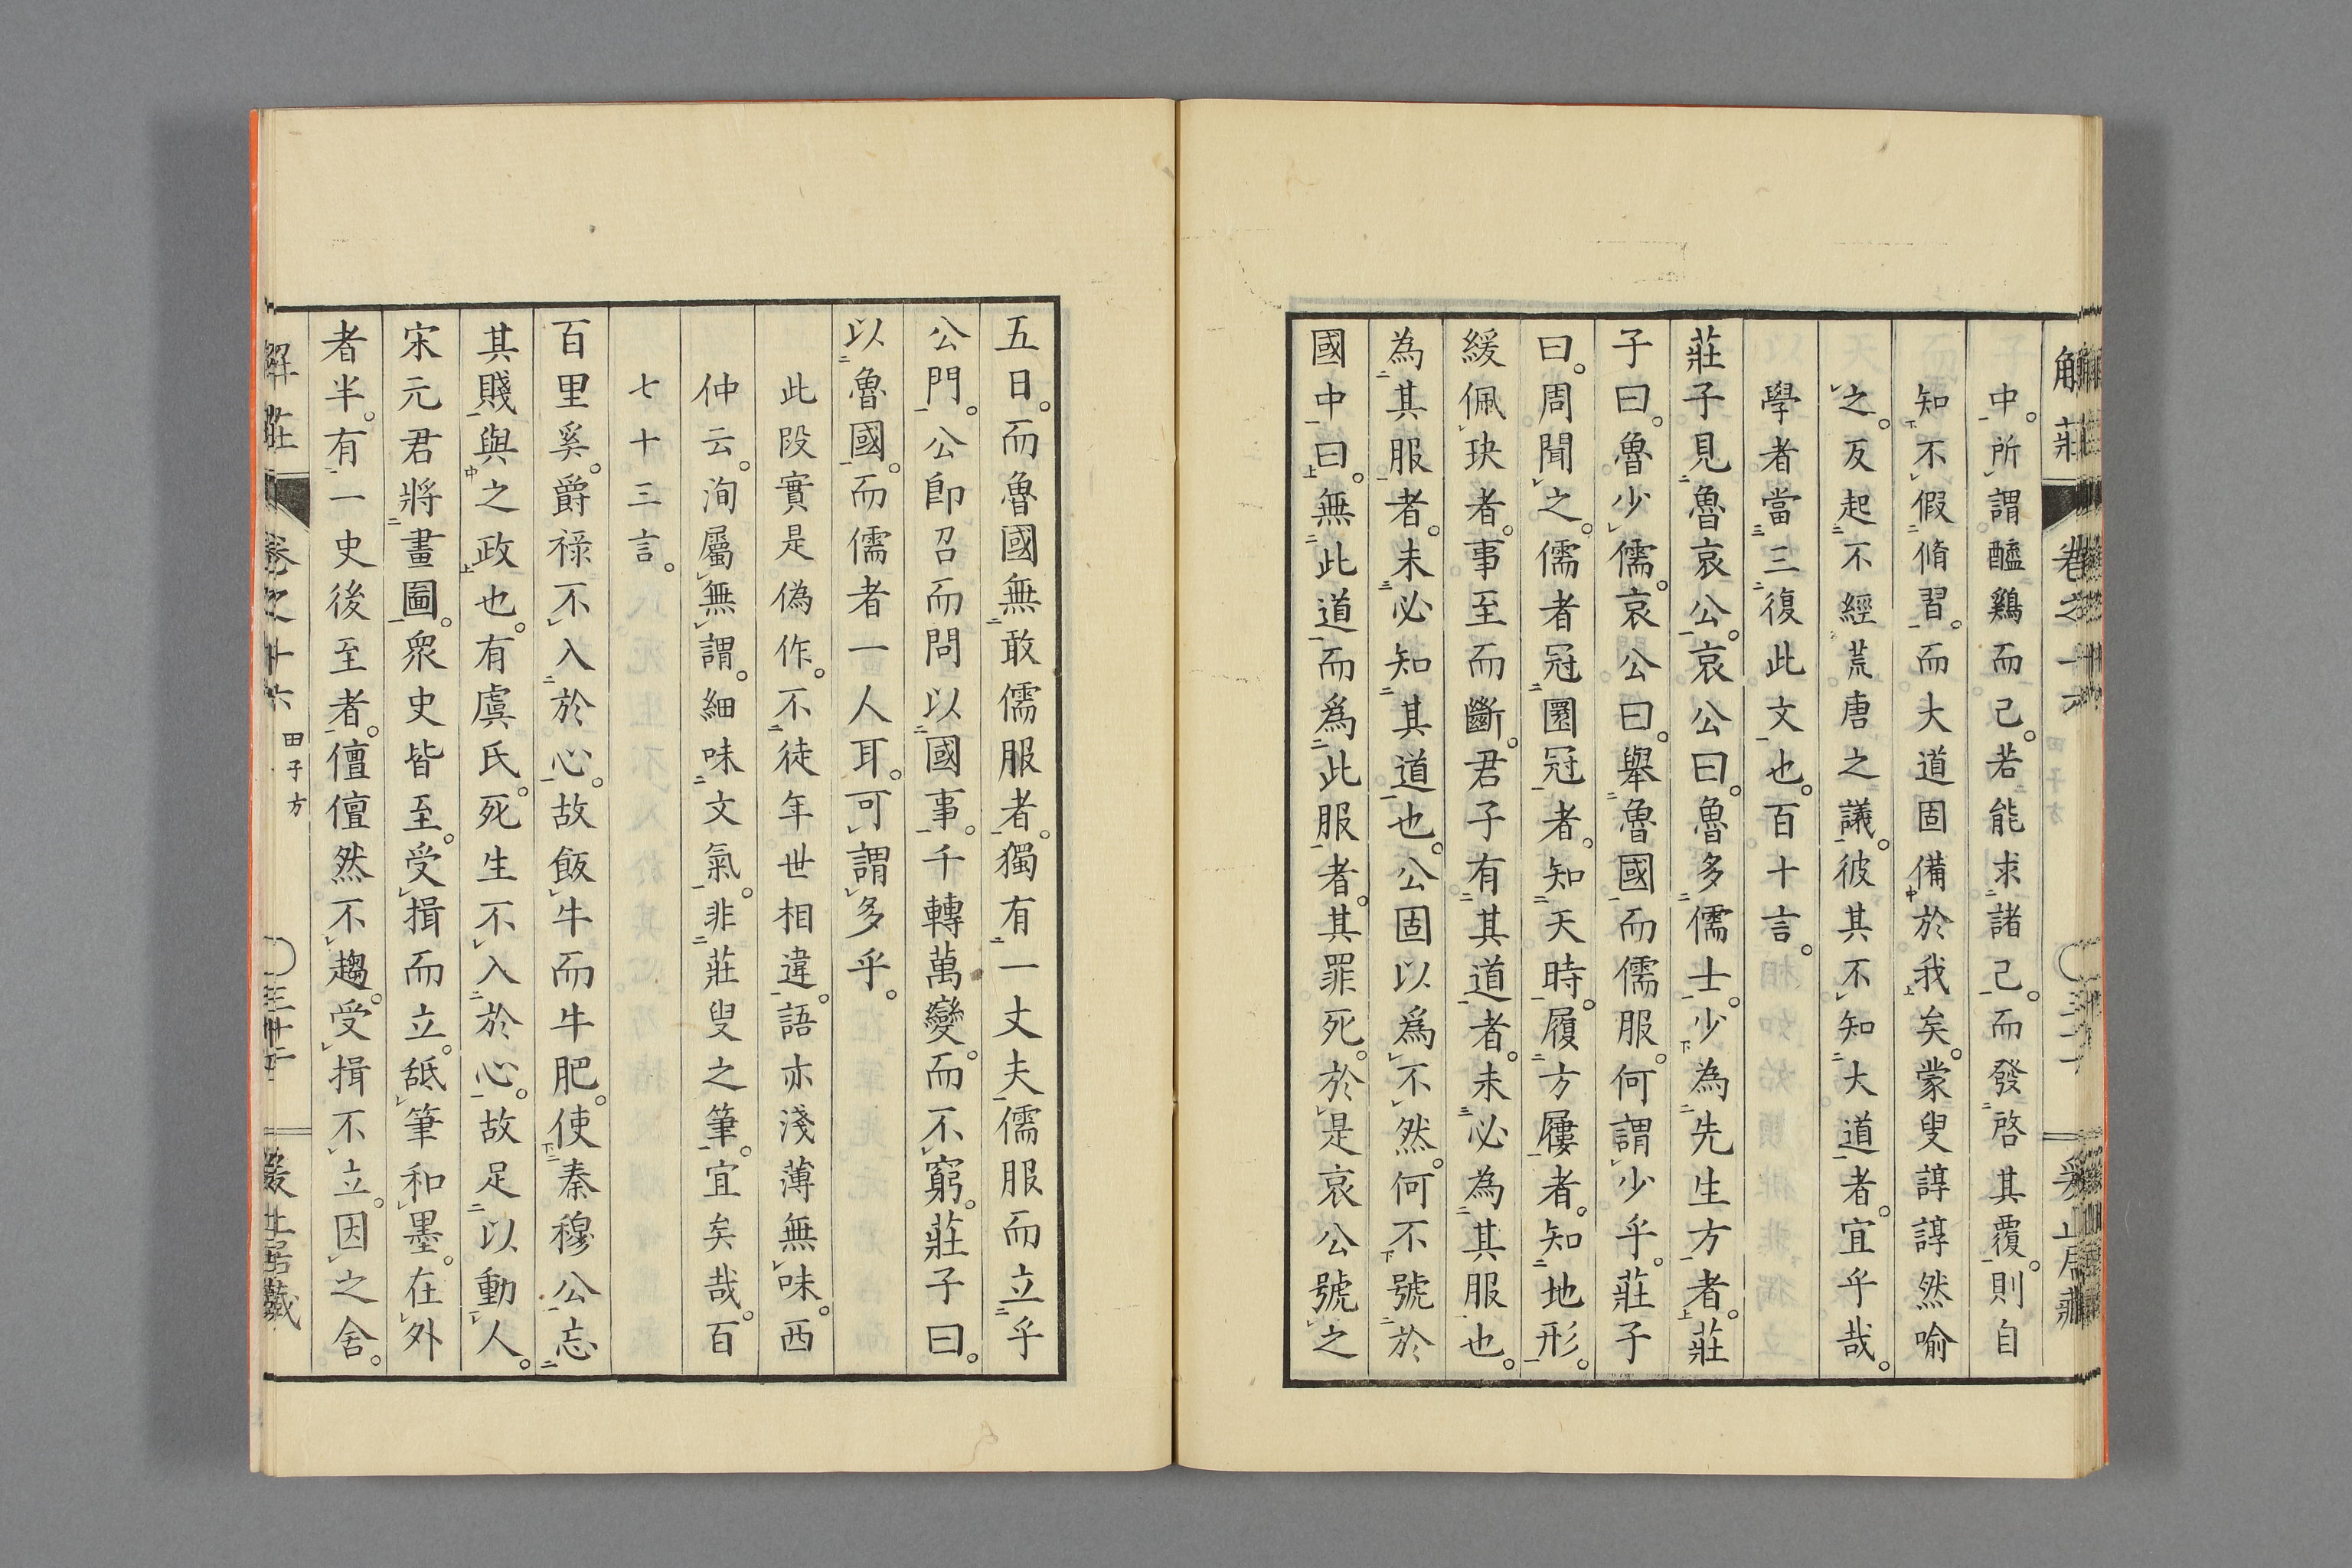 中。所謂醯鷄而己。若能求諸己。而發啓其覆。則自
知不假脩習。而大道固備於我矣。蒙叟諄諄然喻
之。反起不經荒唐之議。彼其不知大道者。宜乎哉。
學者當三復此文也。百十言。
莊子見魯哀公。哀公曰。魯多儒士。少為先生方者。莊
子曰。魯少儒。哀公曰。舉魯國而儒服。何謂少乎。莊子
曰。周聞之。儒者冠圜冠者。知天時。履方屨者。知地形。
緩佩玦者。事至而斷。君子有其道者。未必為其服也。
為其服者。未必知其道也。公固以爲不然。何不號於
國中曰。無此道而爲此服者。其罪死。於是哀公號之
五日。而魯國無敢儒服者。獨有一丈夫儒服而立乎
公門。公卽召而問以國事。千轉萬變。而不窮。莊子曰。
以魯國。而儒者一人耳。可謂多乎。
此段實是偽作。不徒年世相違。語亦淺薄無味。西
仲云。洵屬無謂。細味文氣。非莊叟之筆。宜矣哉。百
七十三言。
百里奚。爵祿不入於心。故飯牛而牛肥。使秦穆公忘
其賤與之政也。有虞氏。死生不入於心。故足以動人。
宋元君將畫圖。衆史皆至。受揖而立。舐筆和墨。在外
者半。有一史後至者。儃儃然不趨。受揖不立。因之舍。
解莊 卷之十六 田子方